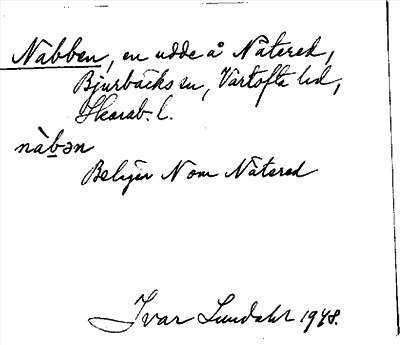 Nabben, en udde å Nätered,
Bjurbäcks sn, Vartofta hd,
Skarab. l.
nàb̲ən
Beläget N om Nätered
Ivar Lundahl 1948.